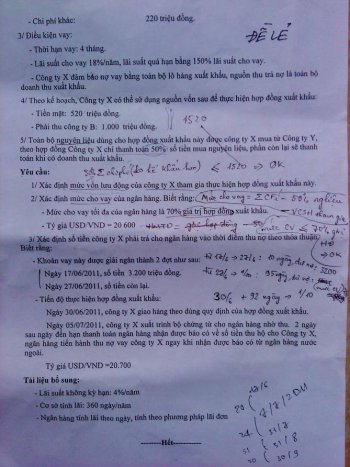 - Chi phí khác: 220 triệu đồng.
ĐỀ LẺ
3/ Điều kiện vay:
- Thời hạn vay: 4 tháng.
- Lãi suất cho vay 18%/năm, lãi suất quá hạn bằng 150% lãi suất cho vay.
- Công ty X đảm bảo nợ vay bằng toàn bộ lô hàng xuất khẩu, nguồn thu trả nợ là toàn bộ
doanh thu xuất khẩu.
4/ Theo kế hoạch, Công ty X có thể sử dụng nguồn vốn sau để thực hiện hợp đồng xuất khẩu:
- Tiền mặt: 520 triệu đồng.
1520
- Phải thu công ty B: 1.000 triệu đồng.
5/ Toàn bộ nguyên liệu dùng cho hợp đồng xuất khẩu này được công ty X mua từ Công ty Y,
theo hợp đồng Công ty X chỉ thanh toán 50% số tiền mua nguyên liệu, phần còn lại sẽ thanh
toán khi có doanh thu xuất khẩu.
Yêu cầu:
≤ 1520 → OK
1/ Xác định mức vốn lưu động của công ty X tham gia thực hiện hợp đồng xuất khẩu này.
2/ Xác định mức cho vay của ngân hàng. Biết rằng: Mức cho vay =
- Mức cho vay tối đa của ngân hàng là 70% giá trị hợp đồng xuất khẩu.
- Tỷ giá USD/VND = 20 600
3/ Xác định số tiền công ty X phải trả cho ngân hàng vào thời điểm thu nợ theo thỏa thuận.
Biết rằng:
- Khoản vay này được giải ngân thành 2 đợt như sau:
Ngày 17/06/2011, số tiền 3.200 triệu đồng.
Ngày 27/06/2011, số tiền còn lại.
- Tiến độ thực hiện hợp đồng xuất khẩu:
30/6 + 92 ngày →
Ngày 30/06/2011, công ty X giao hàng theo đúng quy định của hợp đồng xuất khẩu.
Ngày 05/07/2011, công ty X xuất trình bộ chứng từ cho ngân hàng nhờ thu. 2 ngày
sau ngày đến hạn thanh toán ngân hàng nhận được báo có về số tiền thu hộ cho Công ty X,
ngân hàng tiến hành thu nợ vay công ty X ngay khi nhận được báo có từ ngân hàng nước
ngoài.
Tỷ giá USD/VND =20.700
Tài liệu bổ sung:
- Lãi suất không kỳ hạn: 4%/năm
- Cơ sở tính lãi: 360 ngày/năm
- Ngân hàng tính lãi theo ngày, tính theo phương pháp lãi đơn
17/6
7/7/2011
31/7
31/8
30/9
Hết